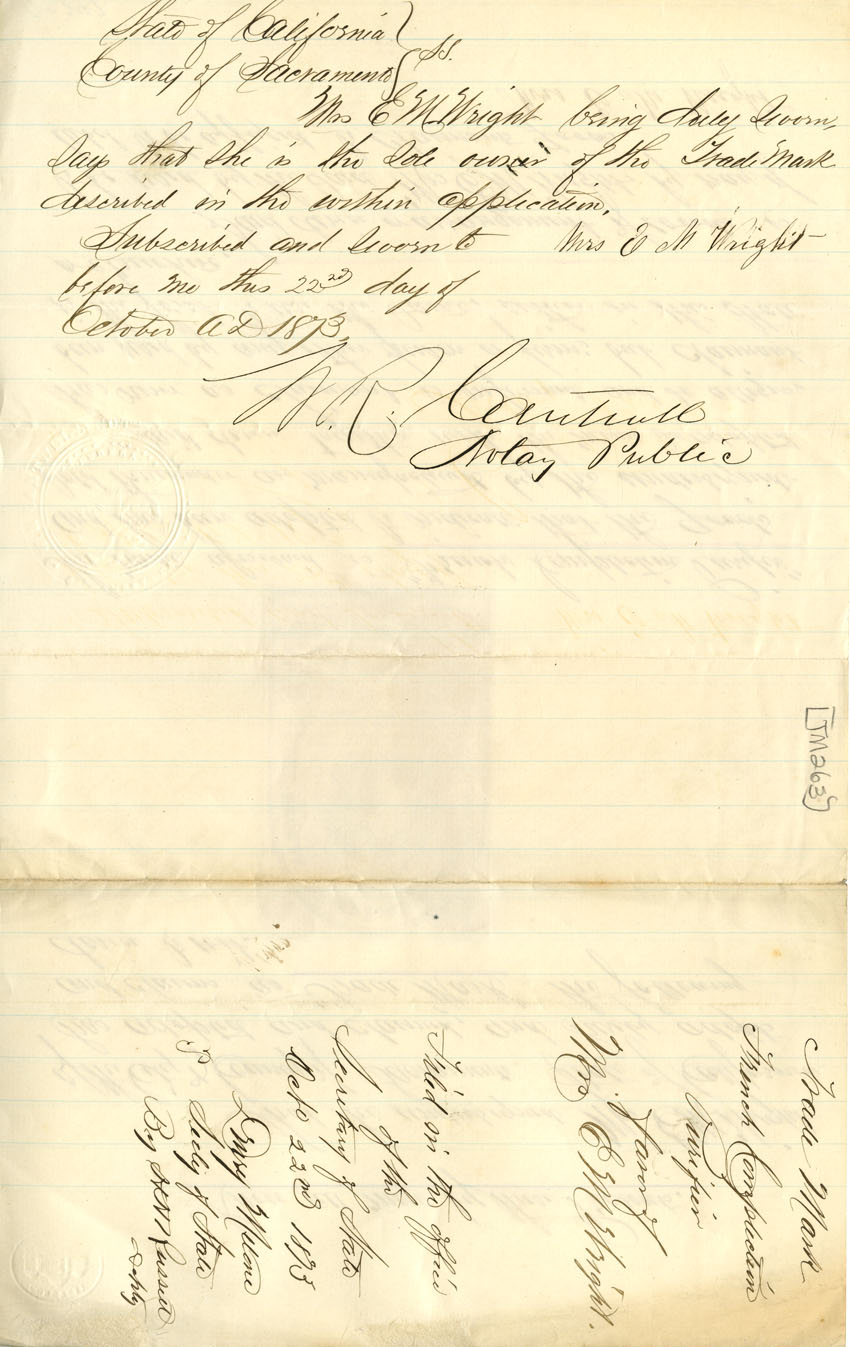 State of California
County of Sacramento } SS.
Mrs E M Wright being duly sworn,
says that she is the sole owner of the Trade Mark
described in the within application.
Subscribed and sworn to Mrs E M Wright
before me this 22nd day of
October A D 1873.
W. R. Cantwell
Notay Public
[TM263]
Trade Mark
French Complection
Purifier
favor of
Mrs E M Wright.
Filed in the office
of the
Secretary of State
Octo 22nd 1873
Drury Melone
Secty of State
By
Deputy